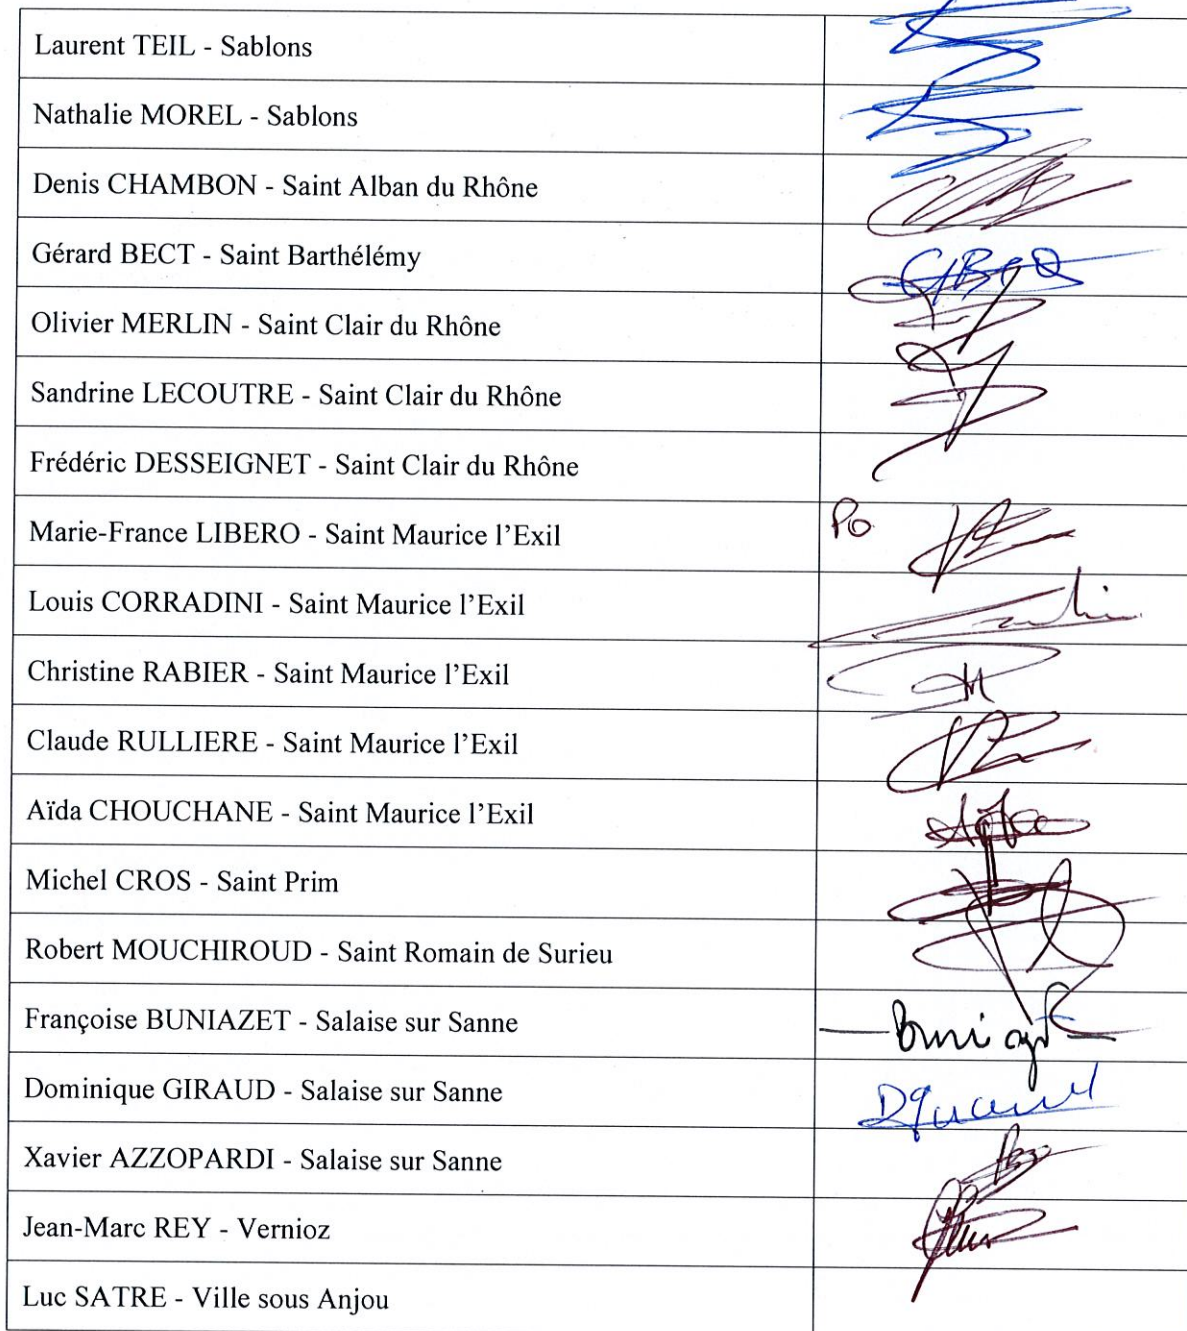 Laurent TEIL - Sablons
Nathalie MOREL - Sablons
Denis CHAMBON - Saint Alban du Rhône
Gérard BECT - Saint Barthélémy
Olivier MERLIN - Saint Clair du Rhône
Sandrine LECOUTRE - Saint Clair du Rhône
Frédéric DESSEIGNET - Saint Clair du Rhône
Marie-France LIBERO - Saint Maurice l'Exil PO
Louis CORRADINI - Saint Maurice l'Exil
Christine RABIER - Saint Maurice l'Exil
Claude RULLIERE - Saint Maurice l'Exil
Aïda CHOUCHANE - Saint Maurice l'Exil
Michel CROS - Saint Prim
Robert MOUCHIROUD - Saint Romain de Surieu
Françoise BUNIAZET - Salaise sur Sanne
Dominique GIRAUD - Salaise sur Sanne
Xavier AZZOPARDI - Salaise sur Sanne
Jean-Marc REY - Vernioz
Luc SATRE - Ville sous Anjou